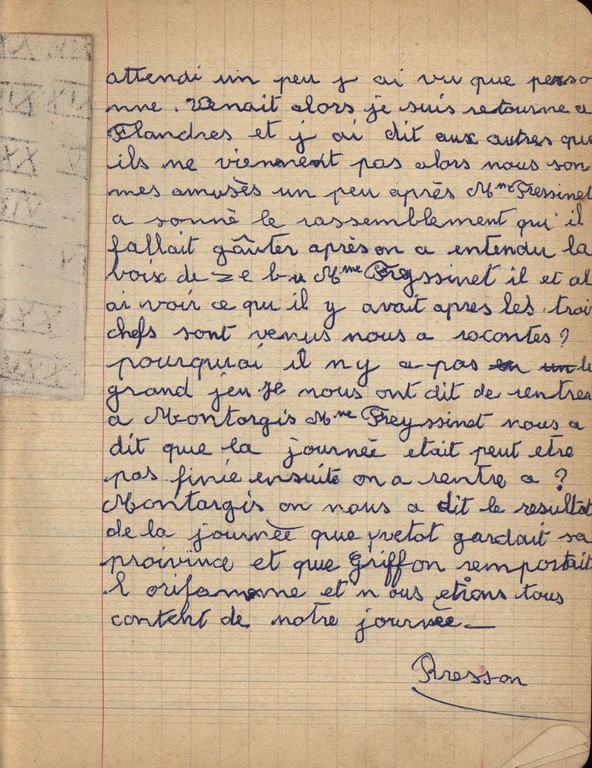 attendi un peu j ai vu que perso
nne. Venait alors je suis retourne a
Flandres et j ai dit aux autres que
ils ne viennent pas alors nous som
mes amusès un peu après Mme Fressinet
a sonnè le rassemblement qu'il
fallait gâuter aprèson a entendu la
voix de zebu Mme Freyssinet il et al
ai voir ce qu il y avait apres les troi
chefs sont venus nous a racontes?
pourquoi il n y a pas le
grand jeu Je nous ont dit de rentres
a Montargis Mme Freyssinet nous a
dit que la journée etait peut etre
pas finie ensuite on a rentre a?
Montargis on nous a dit le resultat
de la journèe que yvetot gardait sa
proivince et que Griffon remportait
l orifamme et nous etions tous
content de notre journèe_
Rresson
XX
VI
XX